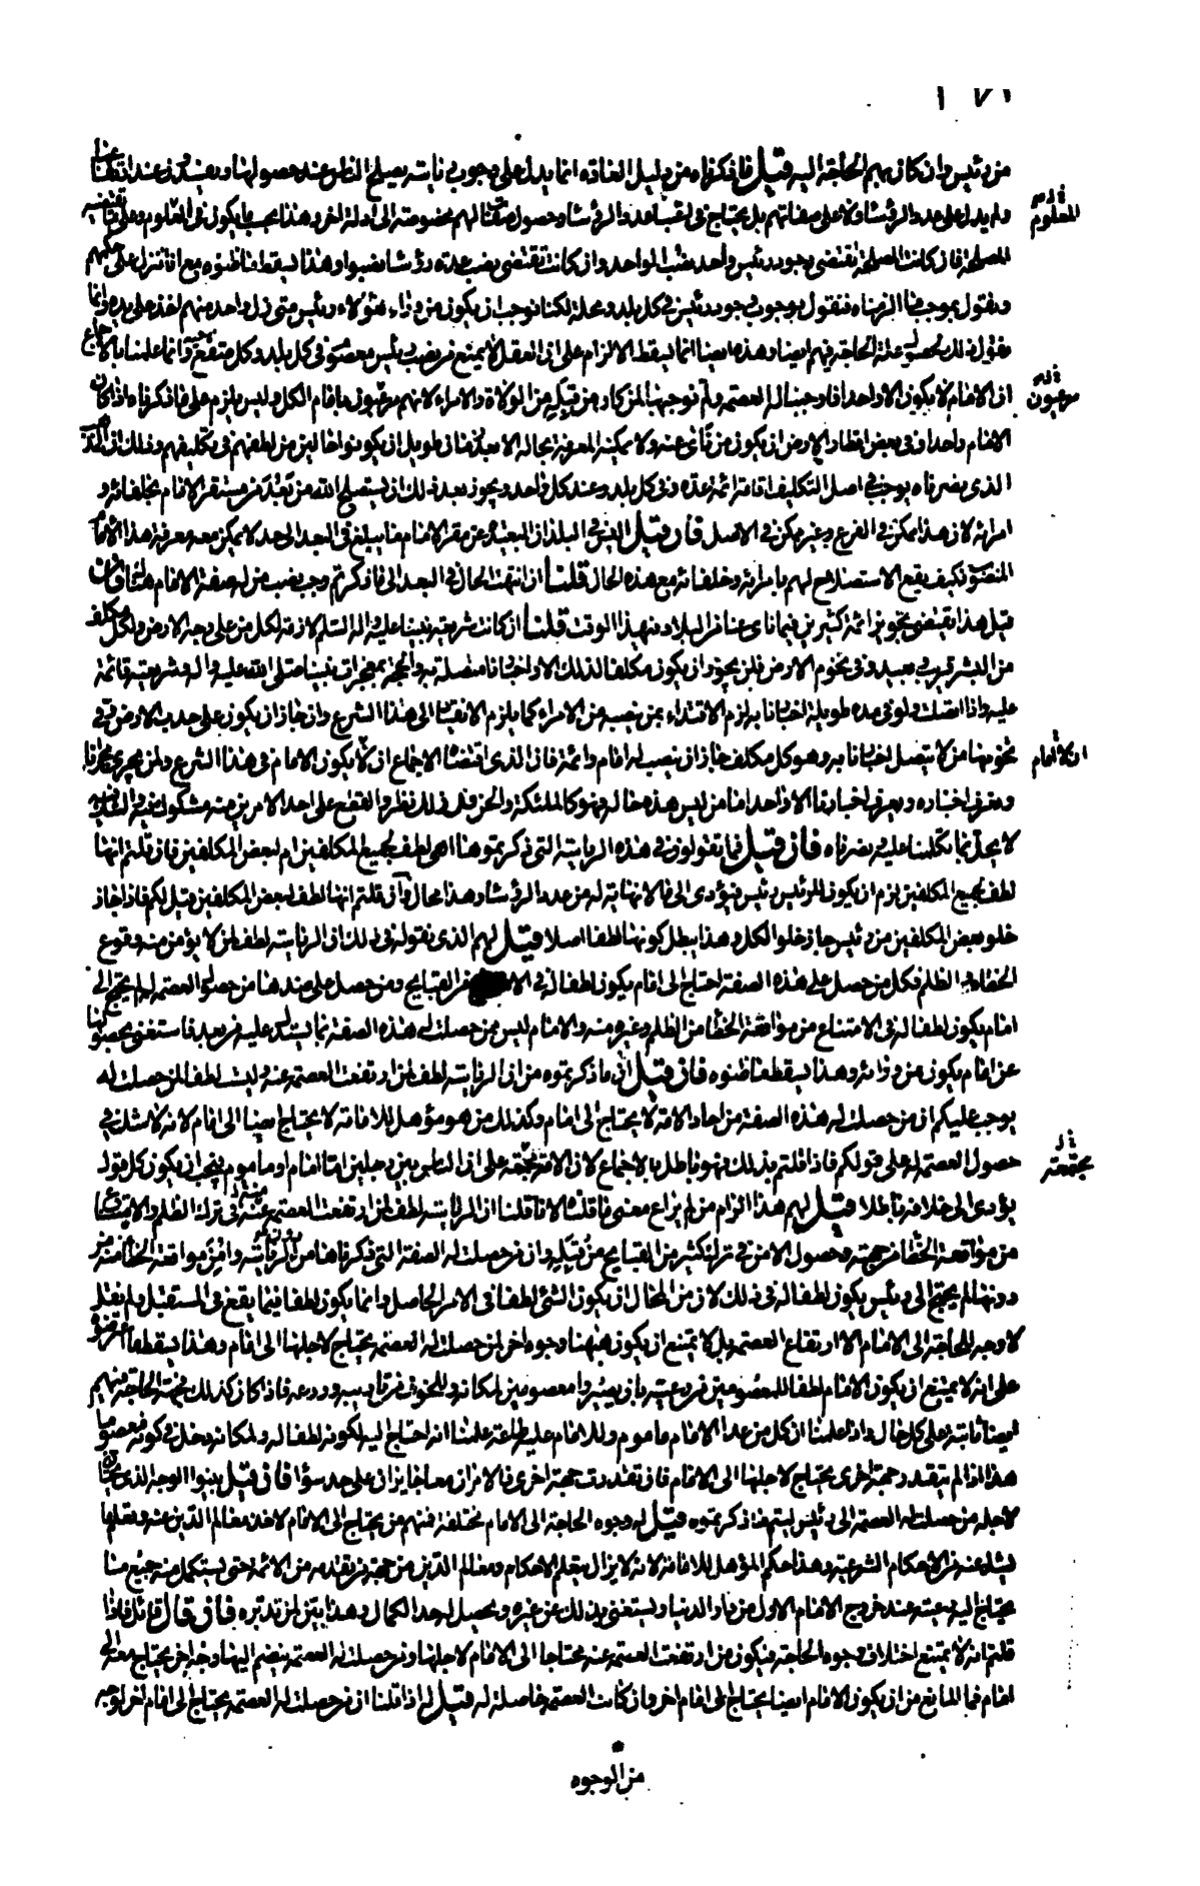 ١٧١
من رئيس وان كان بهم الحاجة اليه قيل ما ذكرناه من دليل العادة انما يدل على وجوب رياسة يصلح الناس عند حصولها ويفسدون عند
ولم يدل على عدد الرؤساء ولا على صفاتهم بل يحتاج في عدد الرؤساء وحصول صفاتهم الى ادلة اخر وهذا بحسب ما يكون في المعلوم وعلى ما تقتضيه
المعلوم
المصلحة فان كانت المصلحة تقتضى وجود رئيس واحد نصب الواحد وان كانت تقتضى نصب عدة رؤساء نصبوا وهذا يسقط ما ظنوه مع انا ننزل على حكمهم
ونقول بموجب ما الزمناه فنقول بوجوب وجود رئيس في كل بلد ومحلة لكنا نوجب ان يكون من وراء هؤلاء رئيس متى زل واحد منهم اخذ على يده وانما
نقول ذلك لحصول علة الحاجة فيهم ايضا وهذا ايضا انما يسقط الالزام على ان العقل لا يمنع من نصب رئيس معصوم في كل بلد وكل صقع وانما علمنا بالاجماع
ان الامام لا يكون الا واحدا فاوجبنا له العصمة ولم نوجبها لمن كان من قبله من الولاة والامراء لانهم مرعيون بامام الكل وليس يلزم على ما ذكرناه اذا كان
مرعيون
الامام واحدا وفي بعض اقطار الارض ان يكون من نأى عنه ولا يمكنه المعرفة بحاله الا بعد زمان طويل ان يكونوا خالين من لطفهم في تكليفهم وذلك ان
الذي نصرناه يوجب في اصل التكليف اقامة ائمة عدة وفي كل بلد وعند كل واحد ويجوز بعد ذلك ان يستصلح الله من تبعد من مستقر الامام بخلفائه و
امرائه لان هذا ممكن في الفرع وغير ممكن في الاصل فان قيل اليس في البلدان البعيدة عن مقر الامام ما يبلغ في البعد الى حد لا يمكن معه معرفة هذا الامام
المنصوب فكيف يقع الاستصلاح لهم بامرائه وخلفائه مع هذه الحال قلنا ان انتهت الحال في البعد الى ما ذكرتم وجب نصب من له صفة الامام هناك فان
قيل هذا يقتضى تجويز ائمة كثيرين فيما نأى عنا من البلاد في هذا الوقت قلنا ان كانت شريعة نبينا عليه واله السلم لازمة لكل من على وجه الارض ولكل مكلف
من البشر قريب وبعيد وفي تخوم الارض فلن يجوز ان يكون مكلفا لذلك الا واخبارنا متصلة به والحجة بمعجزات نبينا صلى الله عليه واله وشريعته قائمة
عليه واذا اتصلت ولو في مدة طويلة اخبارنا به لزم الاقتداء بمن نصبه من الامراء كما يلزم الانقياد الى هذا الشرع وان جاز ان يكون على حدب الارض وفي
تخومها من لا يتصل اخبارنا به وهو كل مكلف جاز ان ينصب له امام وائمة فان الذي اقتضاه الاجماع ان لا يكون الامام في هذا الشرع ولمن يجرى مجرانا
او لا امام
ويعرف اخباره ويعرف اخبارنا الا واحدا فاما من ليس هذه حاله فهو كالملئكة والجن في ذلك نظر والقطع على احد الامرين منه مشكوك فيه
لا يخل بما تكلمنا على نصرناه فان قيل فما تقولون في هذه الرياسة التي ذكرتموها اهى لطف لجميع المكلفين ام لبعض المكلفين فان قلتم انها
لطف لجميع المكلفين لزم ان يكون للرئيس رئيس فيؤدى الى ما لا نهاية له من عدد الرؤساء وهذا محال وان قلتم انها لطف لبعض المكلفين قيل لكم فاذا جاز
خلو بعض المكلفين من رئيس جاز خلو الكل وهذا يبطل كونها لطفا اصلا قيل لهم الذي نقوله في ذلك ان الرياسة لطف لمن لا يؤمن منه وقوع
الخطاء والظلم فكل من حصل على هذه الصفة احتاج الى امام يكون لطفا له في من القبايح ومن حصل على ضدها من حصول العصمة له لم يحتج الى
امام يكون لطفا له في الامتناع من مواقعة الخطأ من الظلم وغيره منه والامام ليس ممن حصلت له هذه الصفة بما يستدل عليه من بعد فاستغنى بحصولها
عن امام يكون من ورائه وهذا يسقط ما ظنوه فان قيل ان ما ذكرتموه من ان الرياسة لطف لمن ارتفعت العصمة عنه وليست لطفا لمن حصلت له
يوجب عليكم ان من حصلت له هذه الصفة من احاد الامة لا يحتاج الى امام وكذلك من هو مؤهل للامامة لا يحتاج ايضا الى امام لانه لا شك في
حصول العصمة له على قولكم فاذا قلتم بذلك فهو باطل بالاجماع لان الامة مجتمعة على ان الناس بين رجلين اما امام او ماموم فيجب ان يكون كل قول
مجتمعة
يؤدى الى خلافه باطلا قيل لهم هذا الزام من لم يراع معنى ما قلناه لانا قلنا ان الرياسة لطف لمن ارتفعت العصمة عنه في ترك الظلم والامتناع
من مواقعة الخطأ من جهته وحصول الامن في ترك كثير من القبايح من قبله وان من حصلت له الصفة التي ذكرناها من وامن مواقعة الخطأ منه من
دونها لم يحتج الى رئيس يكون لطفا له في ذلك لان من المحال ان يكون الشئ لطفا في الامر الحاصل وانما يكون لطفا فيما يقع في المستقبل ولم نقل
لا وجه للحاجة الى الامام الا ارتفاع العصمة بل لا يمتنع ان يكون ههنا وجوه اخر لمن حصلت له العصمة يحتاج لاجلها الى امام وهذا يسقط ما اعترضوا
على انه لا يمتنع ان يكون الامام لطفا للمعصومين من رعيته بان يصيروا معصومين لمكانه وللخوف من تاديبه وردعه فاذا كان كذلك فجهة الحاجة فيهم
ايضا ثابتة على كل حال واذا علمنا ان كل من عدا الامام ماموم وللامام عليه طاعة علمنا انه احتاج اليه لكونه لطفا له ولمكانه دخل في كونه معصوما
هذا اذا لم يتقدر جهة اخرى يحتاج لاجلها الى الامام فان تقدرت جهة اخرى فالامران معا جايزان على حد سواء فان قيل بينوا الوجه الذي يحتاج
لاجله من حصلت له العصمة الى رئيس ليتم ما ذكرتموه قيل له وجوه الحاجة الى الامام مختلفة فمنهم من يحتاج الى الامام لاخذ معالم الدين عنه وتعلم ما
يشذ عنه من الاحكام الشرعية وهذا حكم المؤهل للامامة لانه لا يزال يتعلم الاحكام ومعالم الدين من جهة من تقدمه من الائمة حتى يستكمل منه جميع ما
يحتاج اليه رعيته عند خروج الامام الاول من دار الدنيا ويستغنى بذلك عن غيره ويحصل له حد الكمال وهذا بين لمن تدبره فان قال قائل فاذا
قلتم انه لا يمتنع اختلاف وجوه الحاجة فيكون من ارتفعت العصمة عنه محتاجا الى الامام لاجلها ومن حصلت له العصمة ينضم اليها وجه اخر يحتاج معه الى
امام فما المانع من ان يكون الامام ايضا يحتاج الى امام اخر وان كانت العصمة حاصلة له قيل له اذا قلنا ان من حصلت له العصمة يحتاج الى امام اخر لوجه
من الوجوه